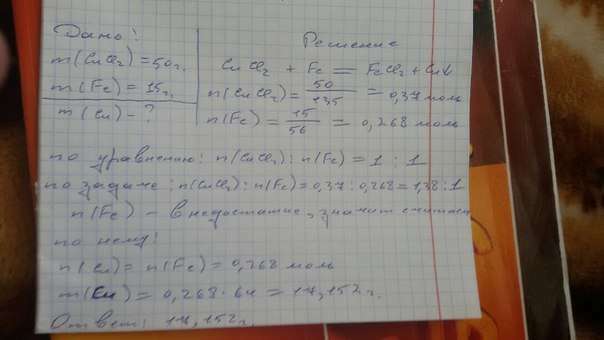 Дано: Решение
m(CuCl₂) = 50г. CuCl₂ + Fe = FeCl₂ + Cu↓
m(Fe) = 15г. n(CuCl₂) = 50/135 = 0,37 моль
m(Cu) - ? n(Fe) = 15/56 = 0,268 моль
по уравнению: n(CuCl₂) : n(Fe) = 1 : 1
по задаче: n(CuCl₂) : n(Fe) = 0,37 : 0,268 = 1,38 : 1
n(Fe) - в недостатке, значит считаем
по нему:
n(Cu) = n(Fe) = 0,268 моль
m(Cu) = 0,268 · 64 = 17,152г.
Ответ: 17,152г.